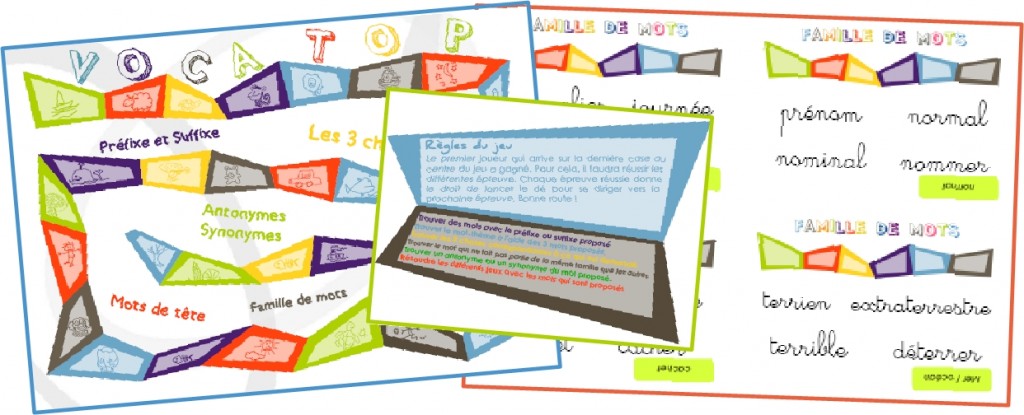 VOCATOP
Préfixe et Suffixe
Les 3 ch
Antonymes
Synonymes
Mots de tête
Famille de mots
Règles du jeu
Le premier joueur qui arrive sur la dernière case au
centre du jeu a gagné. Pour cela, il faudra réussir les
différentes épreuves. Chaque épreuve réussie donne
le droit de lancer le dé pour se diriger vers la
prochaine épreuve. Bonne route !
Trouver des mots avec le préfixe ou suffixe proposé
Trouver le mot qui ne fait pas partie de la même famille que les autres
Trouver un antonyme ou un synonyme du mot proposé.
Résoudre les différents jeux avec les mots qui sont proposés
FAMILLE DE MOTS
journée
cacher
cachet
FAMILLE DE MOTS
prénom normal
nominal nommer
normal
FAMILLE DE MOTS
terrien extraterrestre
terrible déterrer